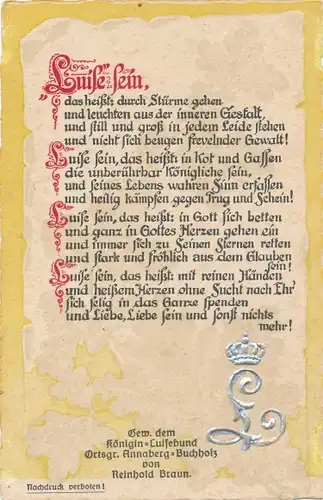 „Luise“ sein,
das heißt: durch Stürme gehen
und leuchten aus der inneren Gestalt,
und still und groß in jedem Leide stehen
und nicht sich beugen frevelnder Gewalt!
Luise sein, das heißt: in Kot und Gassen
die unberührbar Königliche sein,
und seines Lebens wahren Sinn erfassen
und heilig kämpfen gegen Trug und Schein!
Luise sein, das heißt: in Gott sich betten
und ganz in Gottes Herzen gehen ein
und immer sich zu Seinen Sternen retten
und stark und fröhlich aus dem Glauben
sein!
Luise sein, das heißt: mit reinen Händen
und heißem Herzen ohne Sucht nach Ehr'
sich selig in das Ganze spenden
und Liebe, Liebe sein und sonst nichts
mehr!
L
Gew. dem
Königin-Luisebund
Ortsgr. Annaberg-Buchholz
von
Reinhold Braun.
Nachdruck verboten!